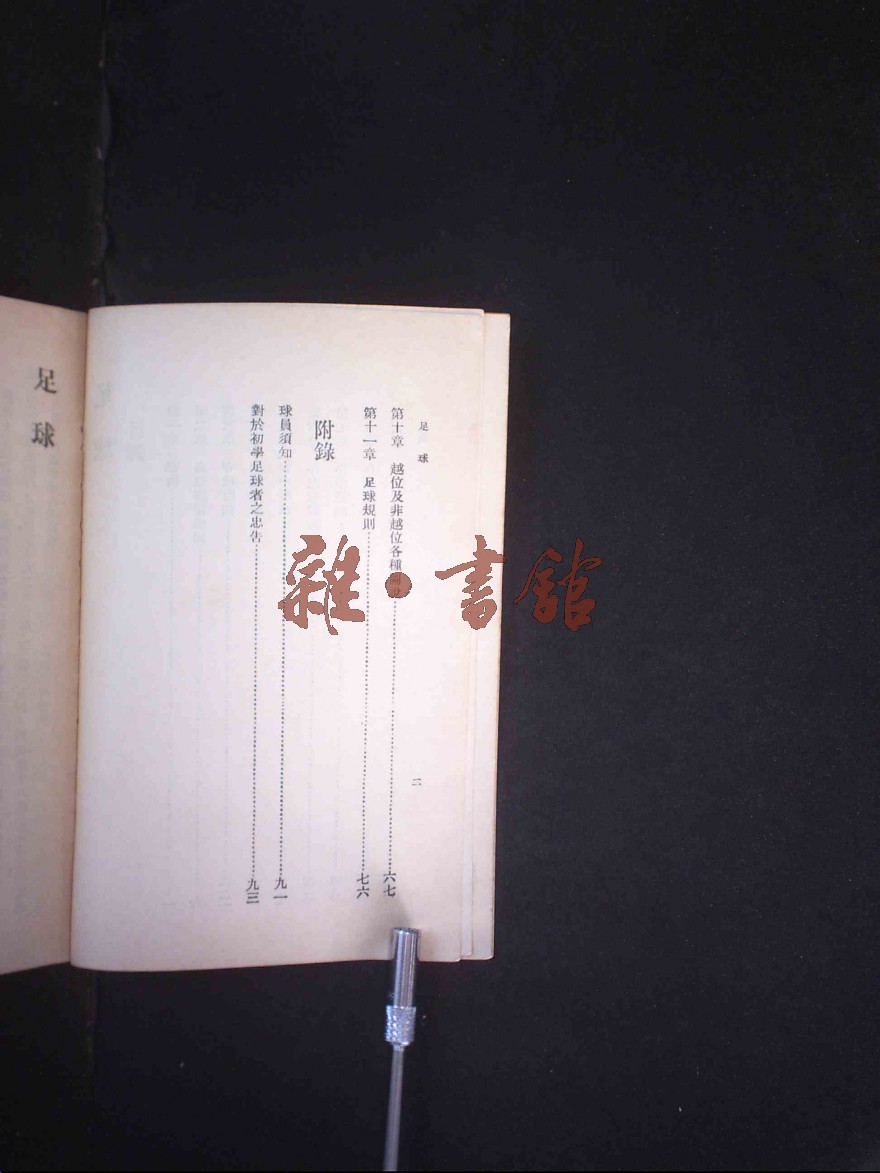 足球
二
第十章 越位及非越位各種…………六七
第十一章 足球規則…………七六
附錄
球員須知…………九一
對於初學足球者之忠告…………九三
足球
雜·書館